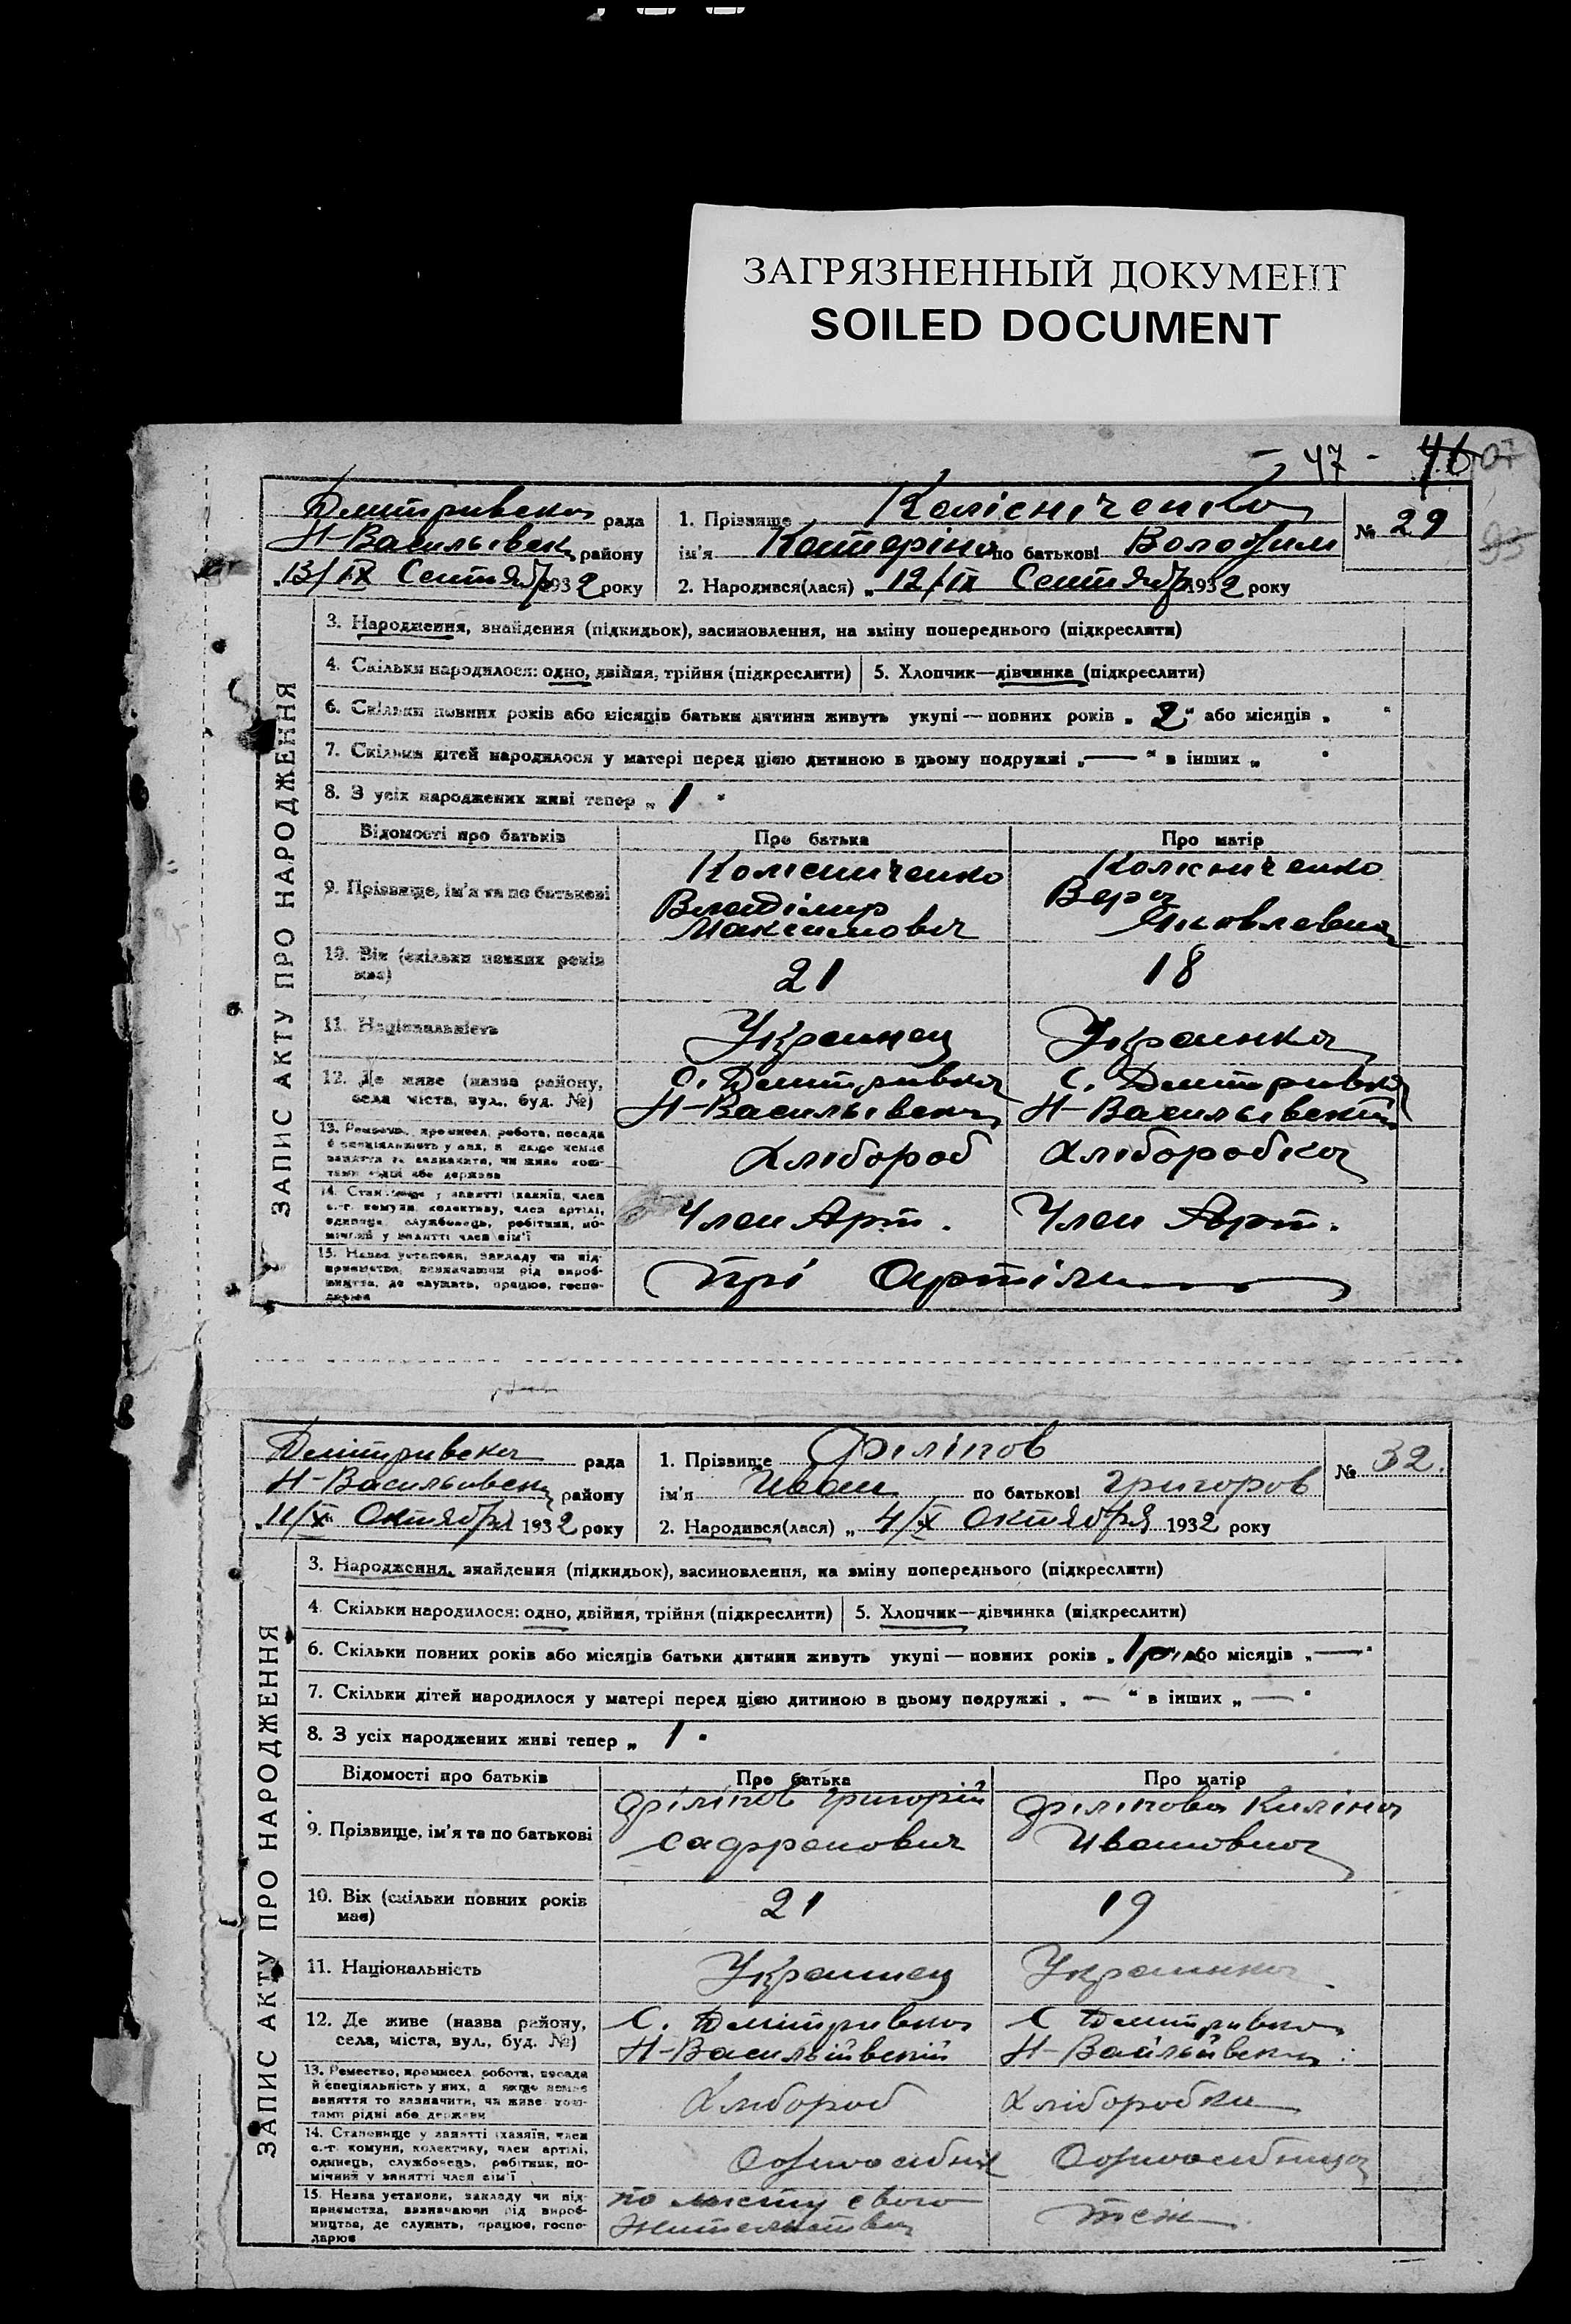 ЗАГРЯЗНЕННЫЙ ДОКУМЕНТ
SOILED DOCUMENT
47 - 46 07
93
Дмитривска рада
Н-Васильівск району
"13/ІХ Сентяб 1932 року
1. Прізвище Колісніченко
ім'я Катеріна по батькові Володим
2. Народився(лася) „ 12/ІХ Сентяб 1932 року
№ 29
ЗАПИС АКТУ ПРО НАРОДЖЕННЯ
3. Народження, знайдення (підкидьок), засиновлення, на зміну попереднього (підкреслити)
4. Скільки народилося: одно, двійня, трійня (підкреслити) 5. Хлопчик—дівчинка (підкреслити)
6. Скільки повних років або місяців батьки дитини живуть укупі — повних років „ 2 “ або місяців „ “
7. Скільки дітей народилося у матері перед цією дитиною в цьому подружжі „ — “ в інших „ “
8. З усіх народжених живі тепер „ 1 “
Відомості про батьків Про батька Про матір
9. Прізвище, ім'я та по батькові
Колісниченко
Владімир
Максимович
Колісниченко
Вера
Яковлевна
10. Вік (скільки повних років має) 21 18
11. Національність Украинец Украинка
12. Де живе (назва району, села міста, вул., буд. №)
с. Дмитривка
Н-Васильівск
с. Дмитривка
Н-Васильівский
13. Ремество, промисел, робота, посада
й спеціяльність у них, а якщо немає
заняття то зазначити, чи живе кош-
тами рідні або держави
Хлібороб Хліборобка
14. Становище у занятті (хазяїн, член
с.-г. комуни, колективу, член артілі,
одинець, службовець, робітник, по-
мічний у занятті член сім'ї
Член Арт. Член Арт.
15. Назва установи, закладу чи під-
приємства, зазначаючи рід вироб-
ництва, де служить, працює, госпо-
дарює
Прі Артіли
Дмітривска рада
Н-Васильовск району
"11/Х Октября 1932 року
1. Прізвище Філіпов
ім'я Иван по батькові Григоров
2. Народився(лася) „ 4/Х Октября 1932 року
№ 32.
ЗАПИС АКТУ ПРО НАРОДЖЕННЯ
3. Народження, знайдення (підкидьок), засиновлення, на зміну попереднього (підкреслити)
4. Скільки народилося: одно, двійня, трійня (підкреслити) 5. Хлопчик—дівчинка (підкреслити)
6. Скільки повних років або місяців батьки дитини живуть укупі — повних років „ 1 р “ або місяців „ — “
7. Скільки дітей народилося у матері перед цією дитиною в цьому подружжі „ — “ в інших „ — “
8. З усіх народжених живі тепер „ 1 “
Відомості про батьків Про батька Про матір
9. Прізвище, ім'я та по батькові
Філіпов Григорій
Сафронович
Філіпова Киліна
Ивановна
10. Вік (скільки повних років має) 21 19
11. Національність Украинец Украинка
12. Де живе (назва району, села, міста, вул., буд. №)
С. Дмітривка
Н-Васильйвский
С Дмитривка
Н-Васильйвск
13. Ремество, промисел, робота, посада
й спеціяльність у них, а якщо немає
заняття то зазначити, чи живе кош-
тами рідні або держави
Хлібороб Хліборобка
14. Становище у занятті (хазяїн, член
с.-г. комуни, колективу, член артілі,
одинець, службовець, робітник, по-
мічний у занятті член сім'ї
Одноосібник Одноосібница
15. Назва установи, закладу чи під-
приємства, зазначаючи рід вироб-
ництва, де служить, працює, госпо-
дарює
по місту свого
жительства
теж